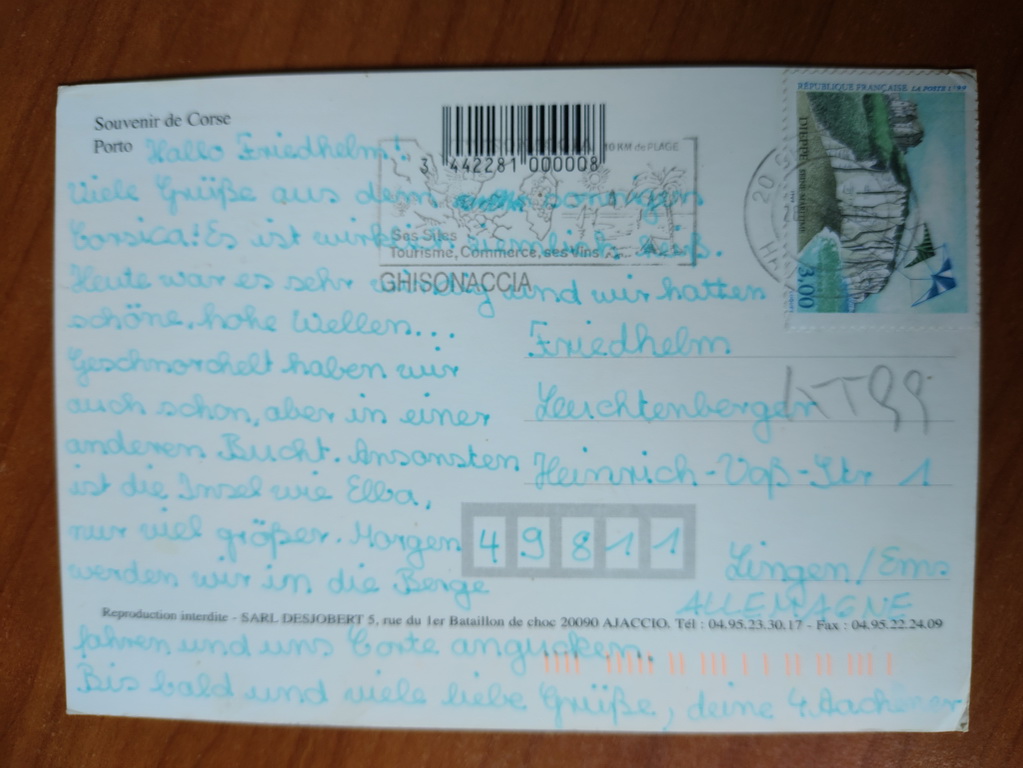 Souvenir de Corse
Porto
Hallo Friedhelm!
Viele Grüße aus dem sonnigen
Corsica! Es ist wirklich ziemlich heiß.
Heute war es sehr windig und wir hatten
schöne, hohe Wellen...
Geschnorchelt haben wir
auch schon, aber in einer
anderen Bucht. Ansonsten
ist die Insel wie Elba,
nur viel größer. Morgen
werden wir in die Berge
fahren und uns Corte angucken.
Bis bald und viele liebe Grüße, deine 4 Aachener
3 442281 000008
10 KM de PLAGE
Ses Sites
Tourisme, Commerce, ses Vins
GHISONACCIA
RÉPUBLIQUE FRANÇAISE LA POSTE
DIEPPE SEINE-MARITIME
3,00
20 G
HA
Friedhelm
Leuchtenberger
KT99
Heinrich-Voß-Str 1
49811
Lingen/Ems
ALLEMAGNE
Reproduction interdite - SARL DESJOBERT 5, rue du 1er Bataillon de choc 20090 AJACCIO. Tél : 04.95.23.30.17 - Fax : 04.95.22.24.09